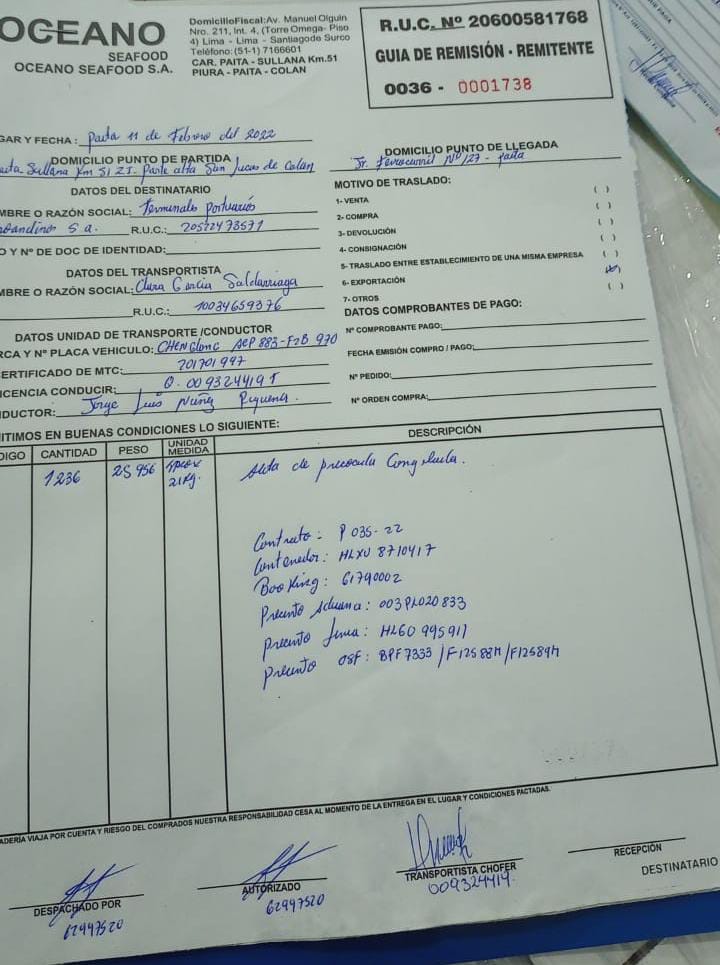 OCEANO
SEAFOOD
OCEANO SEAFOOD S.A.
DomicilioFiscal: Av. Manuel Olguin
Nro. 211, Int. 4, (Torre Omega- Piso
4) Lima - Lima - Santiagode Surco
Teléfono:(51-1) 7166601
CAR. PAITA - SULLANA Km.51
PIURA - PAITA - COLAN
R.U.C. Nº 20600581768
GUIA DE REMISIÓN - REMITENTE
0036 - 0001738
GAR Y FECHA: Paita 11 de Febrero del 2022
DOMICILIO PUNTO DE PARTIDA
Sullana Km 51 Z.I. Parte alta San Lucas de Colán
DOMICILIO PUNTO DE LLEGADA
Jr. Ferrocarril Nº 127 - Paita
DATOS DEL DESTINATARIO
MBRE O RAZÓN SOCIAL: Terminales portuarios
oandinos S a. R.U.C.: 20522473571
O Y Nº DE DOC DE IDENTIDAD:
DATOS DEL TRANSPORTISTA
MBRE O RAZÓN SOCIAL: Clara Garcia Saldarriaga
R.U.C.: 10034659376
DATOS UNIDAD DE TRANSPORTE /CONDUCTOR
RCA Y Nº PLACA VEHICULO: CHENGLONG AEP 883-F2B 970
ERTIFICADO DE MTC: 201701997
ICENCIA CONDUCIR:
DUCTOR: Jorge Luis Nuñez
MOTIVO DE TRASLADO:
1- VENTA ( )
2- COMPRA ( )
3- DEVOLUCIÓN ( )
4- CONSIGNACIÓN ( )
5- TRASLADO ENTRE ESTABLECIMIENTO DE UNA MISMA EMPRESA ( )
6- EXPORTACIÓN
7- OTROS ( )
DATOS COMPROBANTES DE PAGO:
Nº COMPROBANTE PAGO:
FECHA EMISIÓN COMPRO / PAGO:
Nº PEDIDO:
Nº ORDEN COMPRA:
ITIMOS EN BUENAS CONDICIONES LO SIGUIENTE:
DIGO CANTIDAD PESO UNIDAD MEDIDA DESCRIPCIÓN
1236 25 956 21 Kg. Aleta de precocida Congelada.
Contrato: P 035-22
Contenedor: HLXU 8710417
Booking: 61790002
Precinto Aduana: 003PL020833
Precinto linea: HLG0 995911
Precinto OSF: BPF7333 / F12588M / F12589M
ADERÍA VIAJA POR CUENTA Y RIESGO DEL COMPRADOS NUESTRA RESPONSABILIDAD CESA AL MOMENTO DE LA ENTREGA EN EL LUGAR Y CONDICIONES PACTADAS.
DESPACHADO POR
62997520
AUTORIZADO
62997520
TRANSPORTISTA CHOFER
RECEPCIÓN
DESTINATARIO